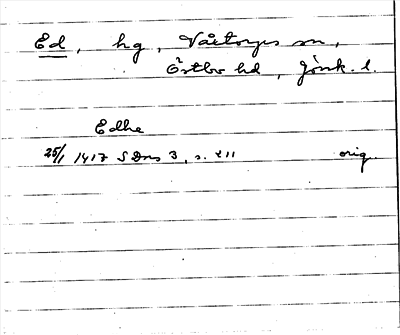 Ed, hg, Våxtorps sn,
Östbo hd, Jönk. l.
Edhe
25/1 1417 SDns 3, s. 211 orig.